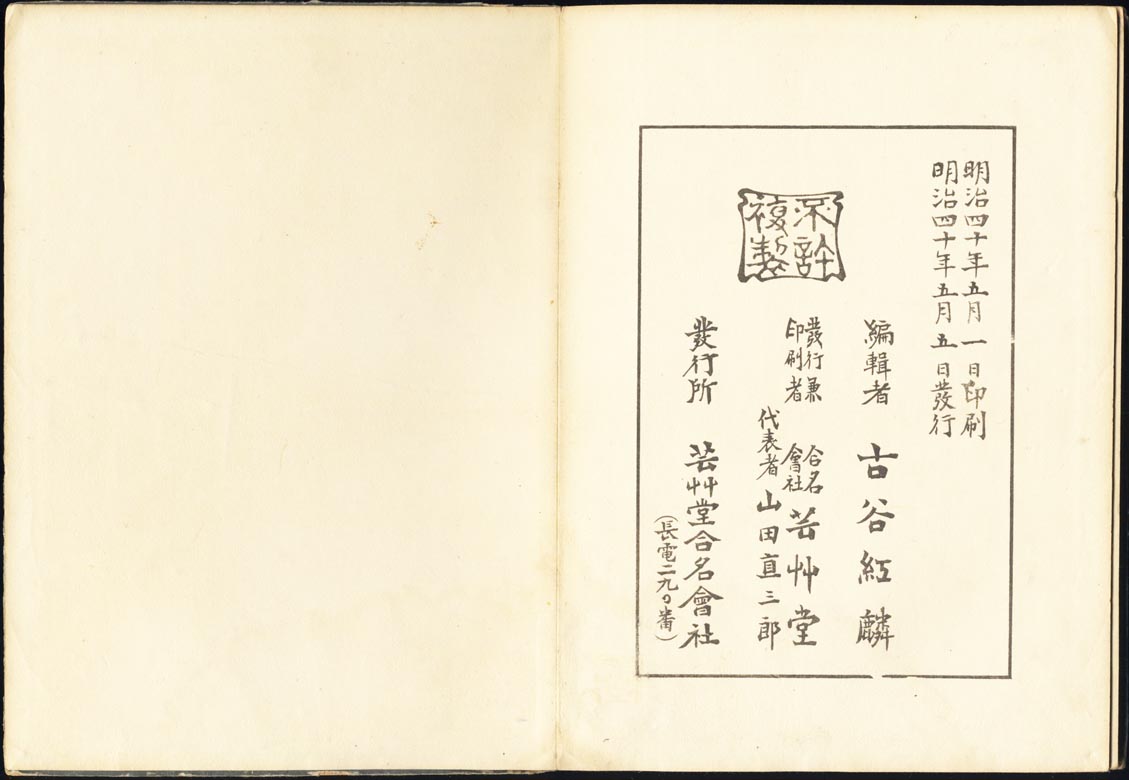 明治四十年五月一日印刷
明治四十年五月五日發行
不許
複製
編輯者 古谷紅麟
發行兼
印刷者
合名
會社
芸艸堂
代表者 山田直三郎
發行所 芸艸堂合名會社
(長電二九〇番)